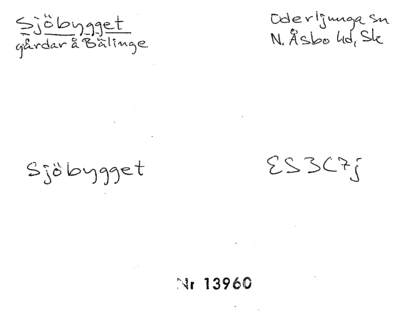 Sjöbygget
gårdar å Bälinge
Oderljunga sn
N. Åsbo hd, Sk
Sjöbygget
ES3C7j
Nr 13960